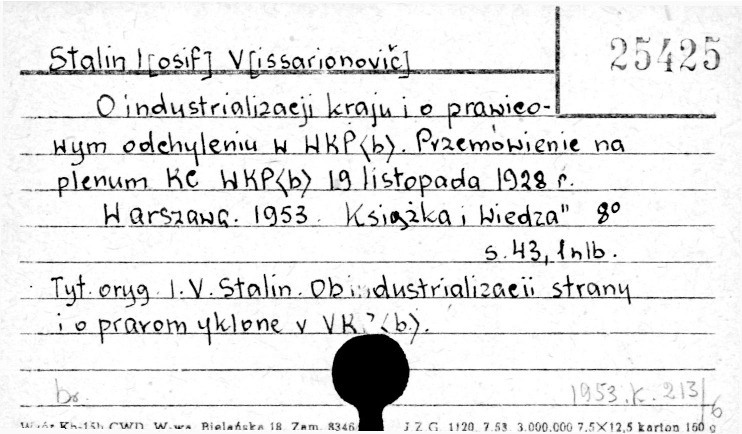 25425
Stalin I[osif] V[issarionovič]
O industrializacji kraju i o prawico-
wym odchyleniu w WKP(b). Przemówienie na
plenum KC WKP(b) 19 listopada 1928 r.
Warszawa. 1953. Książka i Wiedza" 8°
s. 43, 1 nlb.
Tyt. oryg. I. V. Stalin. Ob industrializacii strany
i o pravom uklone v VKP(b).
br. 1953.K.213/6
Kh-15b CWD, W-wa, Bielańska 18. Zam. 8346 J.Z.G. 1120. 7.53. 3.000.000 7,5×12,5 karton 160 g